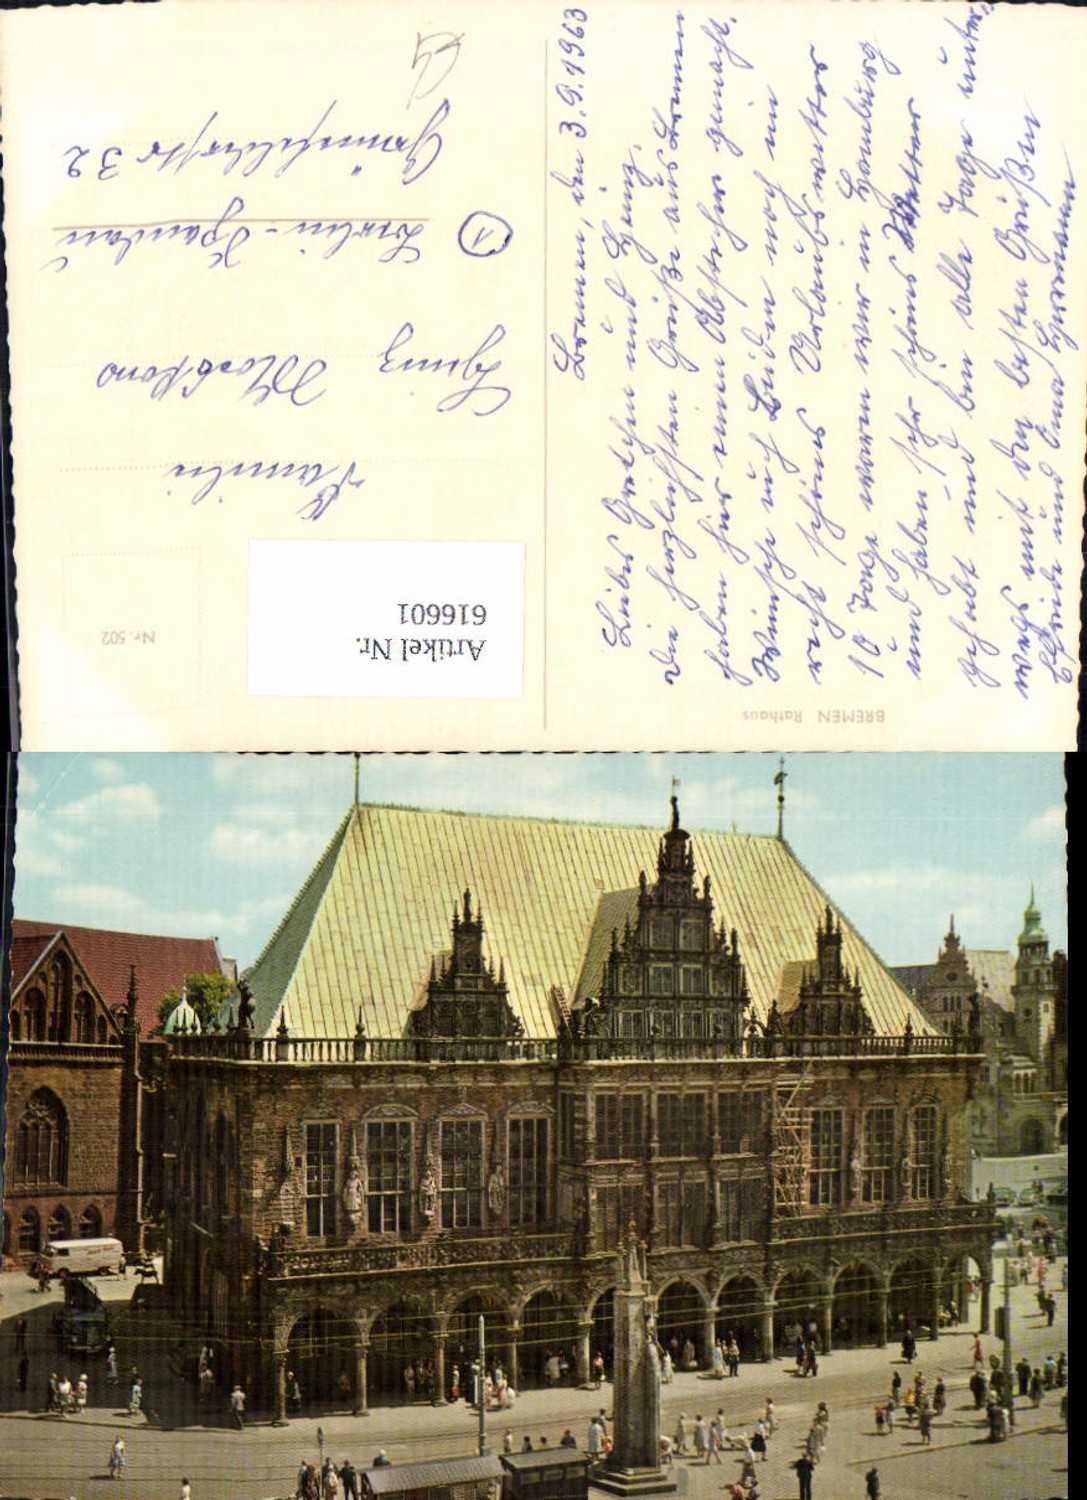 Bremen, den 3.9.1963
Liebes Gretchen und Heinz.
Die herzlichsten Grüße aus Bremen
haben hier einen Abstecher gemacht.
Wünsche euch Beiden noch ein
recht schönes Urlaubswetter
10 Tage waren wir in Hamburg
und haben sehr schönes Wetter
gehabt und bin alle Tage unter,,
wegs mit den besten Grüßen
und Oma Hermann
Familie
Heinz
Berlin-Spandau
1
32
Artikel Nr.
616601
Nr. 502
BREMEN Rathaus